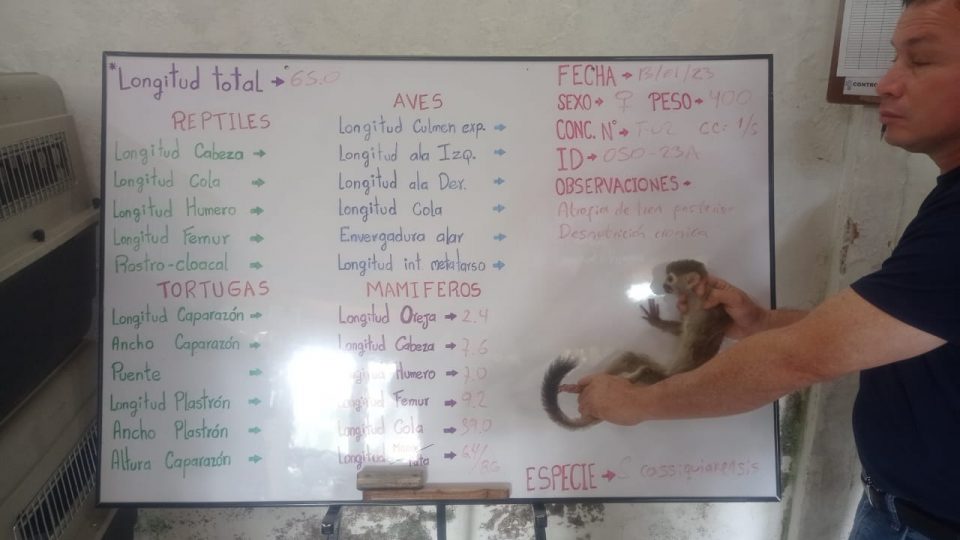 *Longitud total → 65.0
REPTILES
Longitud Cabeza →
Longitud Cola →
Longitud Humero →
Longitud Femur →
Rostro-cloacal →
TORTUGAS
Longitud Caparazón →
Ancho Caparazón →
Puente →
Longitud Plastrón →
Ancho Plastrón →
Altura Caparazón →
AVES
Longitud Culmen exp. →
Longitud ala Izq. →
Longitud ala Der. →
Longitud Cola →
Envergadura alar →
Longitud int. metatarso →
MAMIFEROS
Longitud Oreja → 2.4
Longitud Cabeza → 7.6
Longitud Humero → 7.0
Longitud Femur → 9.2
Longitud Cola → 39.0
Longitud Mano/Pata → 6.4/8.6
FECHA → 13/01/23
SEXO → ♀ PESO → 400
CONC. N° → CC: 1/5
ID → OSO-23A
OBSERVACIONES →
Atrofia de tren posterior
Desnutrición crónica
ESPECIE → S cassiquiarensis
CONTRO